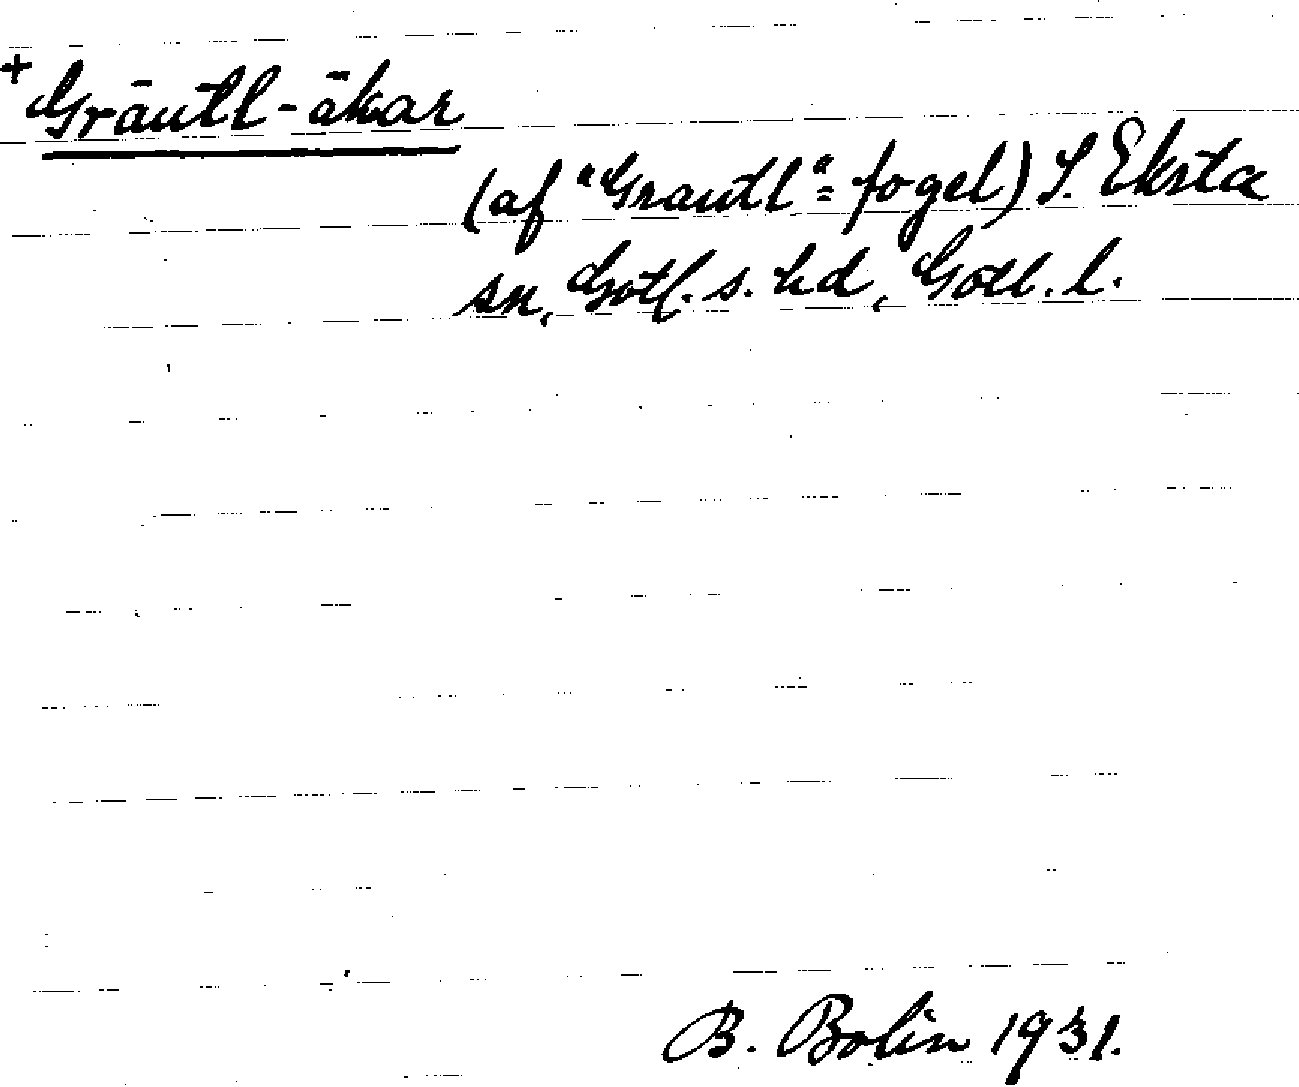 + Gräutl-äkar
(af "Grautl" = fogel) S. Eksta
sn, Gotl. s. hd, Gotl. l.
B. Bolin 1931.